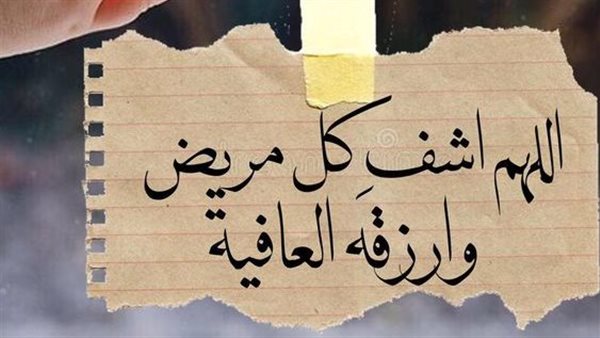 اللهم اشفِ كل مريض
وارزقهَ العافية